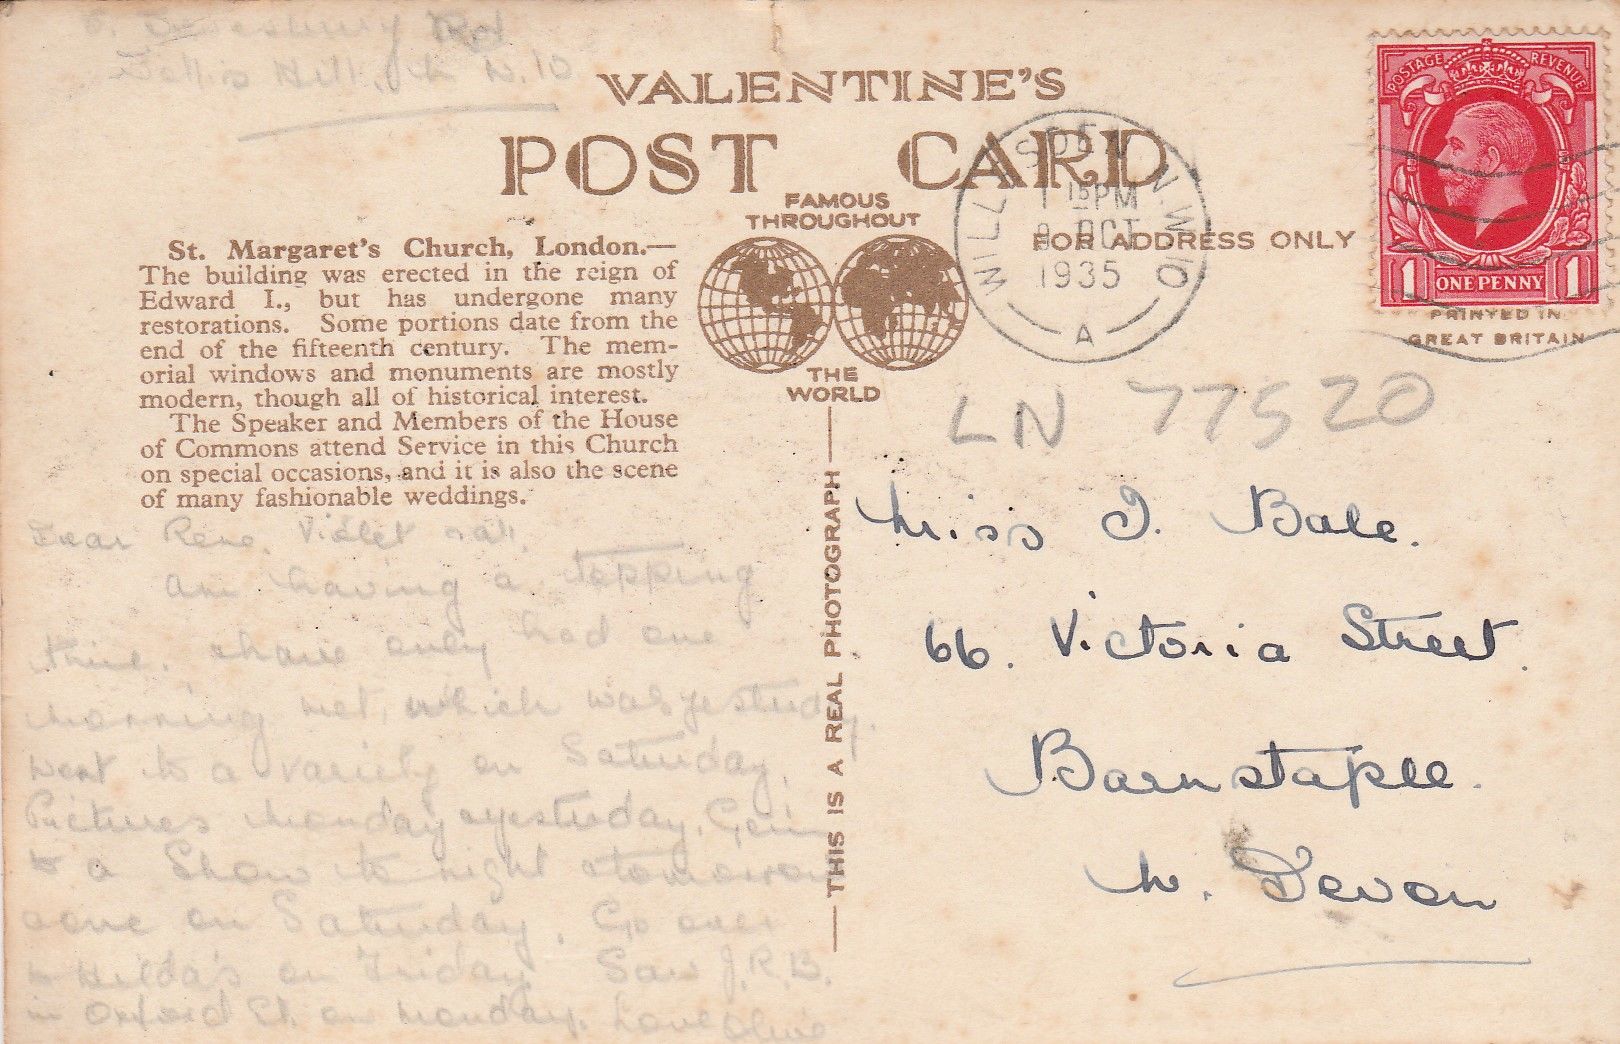 Rd
Hill, N.10
VALENTINE'S
POST CARD
FAMOUS
THROUGHOUT
THE
WORLD
FOR ADDRESS ONLY
WILLESDEN N.W.10
1 15 PM
OCT
1935
A
POSTAGE REVENUE
1 ONE PENNY 1
PRINTED IN
GREAT BRITAIN
St. Margaret's Church, London.—
The building was erected in the reign of
Edward I., but has undergone many
restorations. Some portions date from the
end of the fifteenth century. The mem-
orial windows and monuments are mostly
modern, though all of historical interest.
The Speaker and Members of the House
of Commons attend Service in this Church
on special occasions, and it is also the scene
of many fashionable weddings.
Dear Rene, Violet & all,
am having a topping
time, & have only had one
morning wet, which was yesterday.
Went to a variety on Saturday,
Pictures Monday & yesterday. Going
to a Show to night & tomorrow
& one on Saturday. Go over
to Hilda's on Friday. Saw J.R.B.
in Oxford St. on Monday. Love Olive
THIS IS A REAL PHOTOGRAPH
LN 77520
Miss I. Bale.
66. Victoria Street.
Barnstaple.
N. Devon